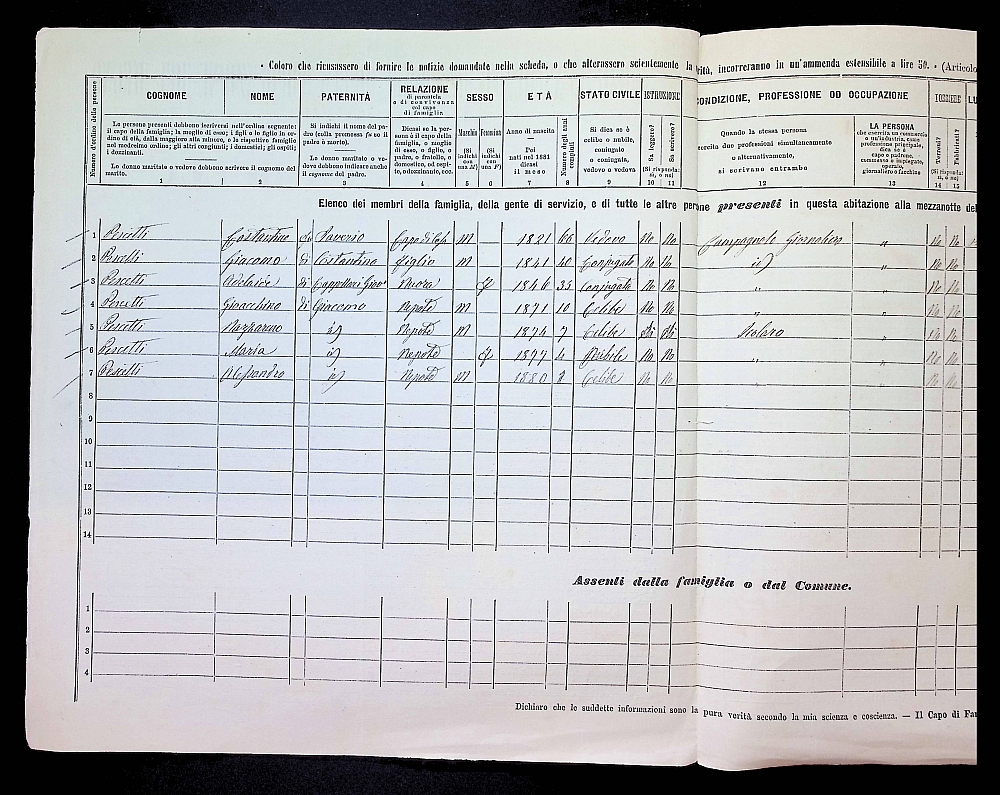 • Coloro che ricusassero di fornire le notizie domandate nella scheda, o che alterassero scientemente la rità, incorreranno in un'ammenda estensibile a lire 50. • (Articolo
Numero d'ordine delle persone
COGNOME
La persone presenti debbono iscriversi nell'ordine seguente: il capo della famiglia; la moglie di esso; i figli e le figlie in ordine di età, dalla maggiore alla minore, e le rispettive famiglie nel medesimo ordine; gli altri congiunti; i domestici; gli ospiti; i dozzinanti.
Le donne maritate o vedove debbono scrivere il cognome del marito.
1
NOME
2
PATERNITÀ
Si indichi il nome del padre (colla premessa fu se il padre è morto).
Le donne maritate o vedove debbono indicare anche il cognome del padre.
3
RELAZIONE
di parentela
o di convivenza
col capo
di famiglia
Dicasi se la persona è il capo della famiglia, o moglie di esso, o figlio, o padre, o fratello, o domestico, od ospite, o dozzinante, ecc.
4
SESSO
Maschio
(Si indichi con una M)
5
Femmina
(Si indichi con una F)
6
ETÀ
Anno di nascita
Poi
nati nel 1881
dicasi
il mese
7
Numero degli anni compiuti
8
STATO CIVILE
Si dica se è
celibe o nubile,
coniugato
o coniugata,
vedovo o vedova
9
ISTRUZIONE
Sa leggere?
Sa scrivere?
(Si risponda: si, o no)
10 11
CONDIZIONE, PROFESSIONE OD OCCUPAZIONE
Quando la stessa persona
esercita due professioni simultaneamente
o alternativamente,
si scrivano entrambe
12
LA PERSONA
che esercita un commercio
o un'industria, come
professione principale,
dica se è
capo o padrone,
commesso o impiegato,
operaio,
giornaliero o facchino
13
POSSIEDE
Terreni?
Fabbricati?
(Si risponda: si, o no)
14 15
LU
Elenco dei membri della famiglia, della gente di servizio, e di tutte le altre persone presenti in questa abitazione alla mezzanotte del
1 Pescetti Costantino di Saverio Capo di Casa M 1821 60 Vedovo No No Campagnolo Giornaliero " No No
2 Pescetti Giacomo di Costantino figlio M 1841 40 Conjugato No No id " No No
3 Pescetti Adelaide di Cappellari Gio Nuora f 1846 35 Conjugata No No " " No No
4 Pescetti Gioacchino di Giacomo Nepote M 1871 10 Celibe No No " " No No
5 Pescetti Nazzareno id Nepote M 1874 7 Celibe Si Si Scolaro " No No
6 Pescetti Maria id Nepote f 1877 4 Nubile No No " " No No
7 Pescetti Alessandro id Nepote M 1880 Celibe No No " " No No
8
9
10
11
12
13
14
Assenti dalla famiglia o dal Comune.
1
2
3
4
Dichiaro che le suddette informazioni sono la pura verità secondo la mia scienza e coscienza. — Il Capo di Fam